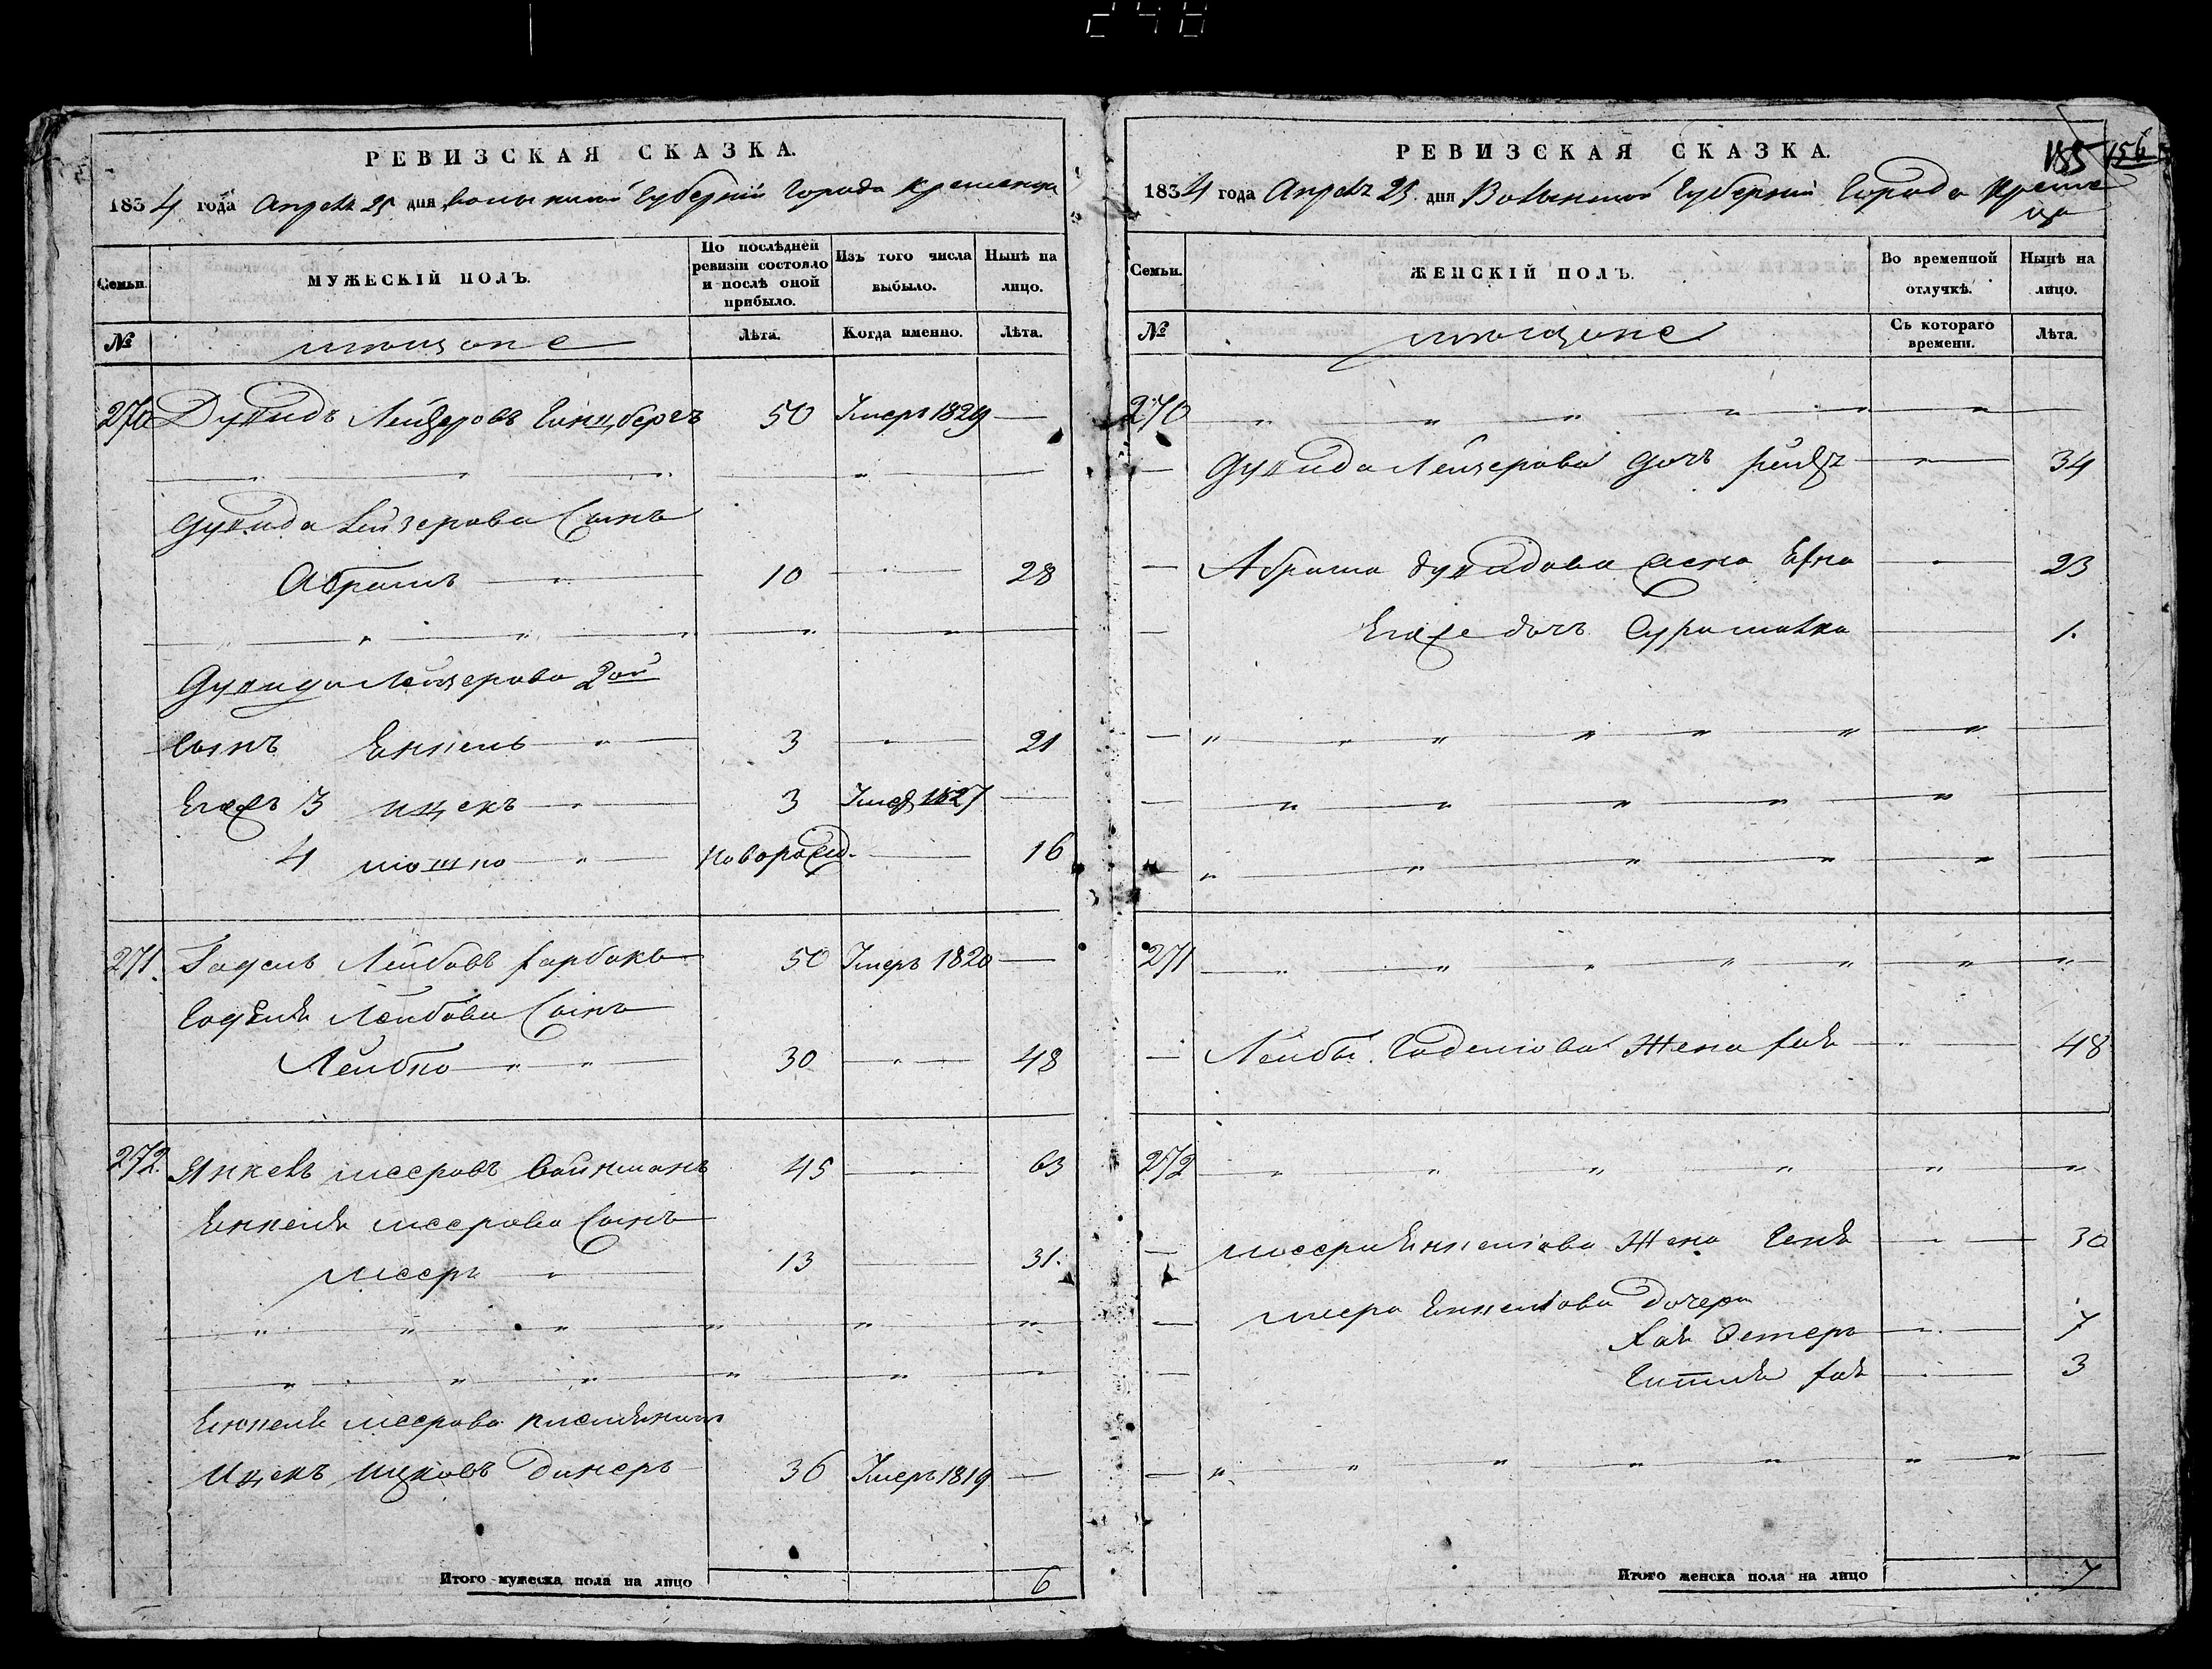 248
РЕВИЗСКАЯ СКАЗКА.
1834 года Апреля 25 дня Волынской Губернии Города Кременца
Семьи. МУЖЕСКІЙ ПОЛЪ. По послѣдней ревизіи состояло и послѣ оной прибыло. Изъ того числа выбыло. Нынѣ на лицо.
№ мещане Лѣта. Когда именно. Лѣта.
270 Дувидъ Лейзеровъ Гинцбергъ 50 Умеръ 1829 —
Дувида Лейзерова Сынъ
Абрамъ 10 — 28
Дувида Лейзерова 2ой
Сынъ Енкель 3 — 21
Егожъ 3 Ицекъ 3 Умеръ 1827 —
4 мошко Новорожд. — 16
271. Годель Лейбовъ 50 Умеръ 1820 —
Годеля Лейбова Сынъ
Лейбко 30 — 48
272. Янкель мееровъ Вайнманъ 45 — 63
Енкеля меерова Сынъ
Мееръ 13 — 31.
Енкеля меерова племянникъ
Ицекъ Ицковъ Динеръ 36 Умеръ 1819 —
Итого мужеска пола на лицо 6
185 156
РЕВИЗСКАЯ СКАЗКА.
1834 года Апреля 25 дня Волынской Губернии Города Кременца
Семьи. ЖЕНСКІЙ ПОЛЪ. Во временной отлучкѣ. Нынѣ на лицо.
№ мещане Съ котораго времени. Лѣта.
270
— Дувида Лейзерова дочь — 34
— Абрама Дувидова жена — 23
— Егоже дочь 1.
271
— Лейбы Годелiова Жена Хая — 48
272
— Меера Енкелiова Жена Геня — 30
— меера Енкелiова дочери
Хая Эстеръ — 7
Гитля Хая — 3
Итого женска пола на лицо 7